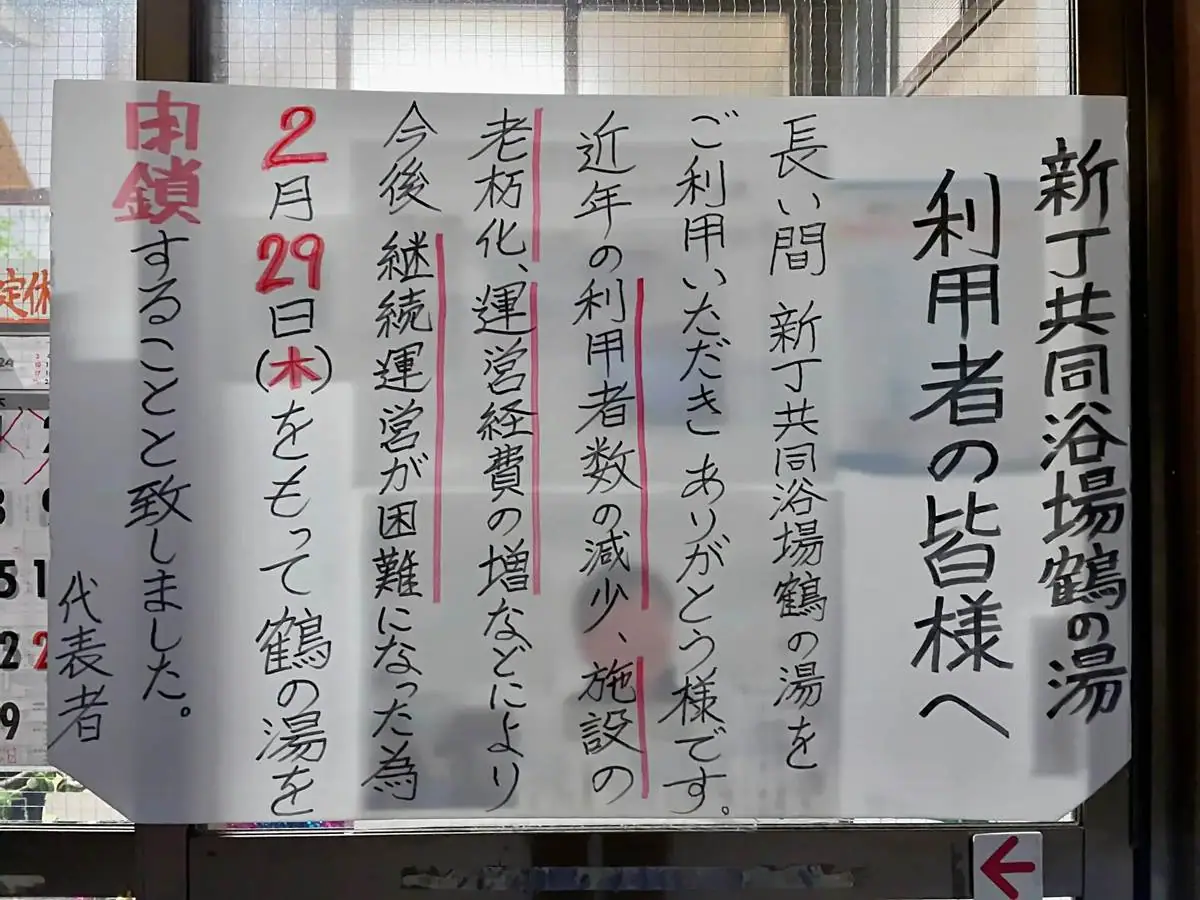 新丁共同浴場鶴の湯
利用者の皆様へ
長い間 新丁共同浴場鶴の湯を
ご利用いただき ありがとう様です。
近年の利用者数の減少、施設の
老朽化、運営経費の増などにより
今後 継続運営が困難になった為
2月29日(木)をもって 鶴の湯を
閉鎖することと致しました。
代表者
定休